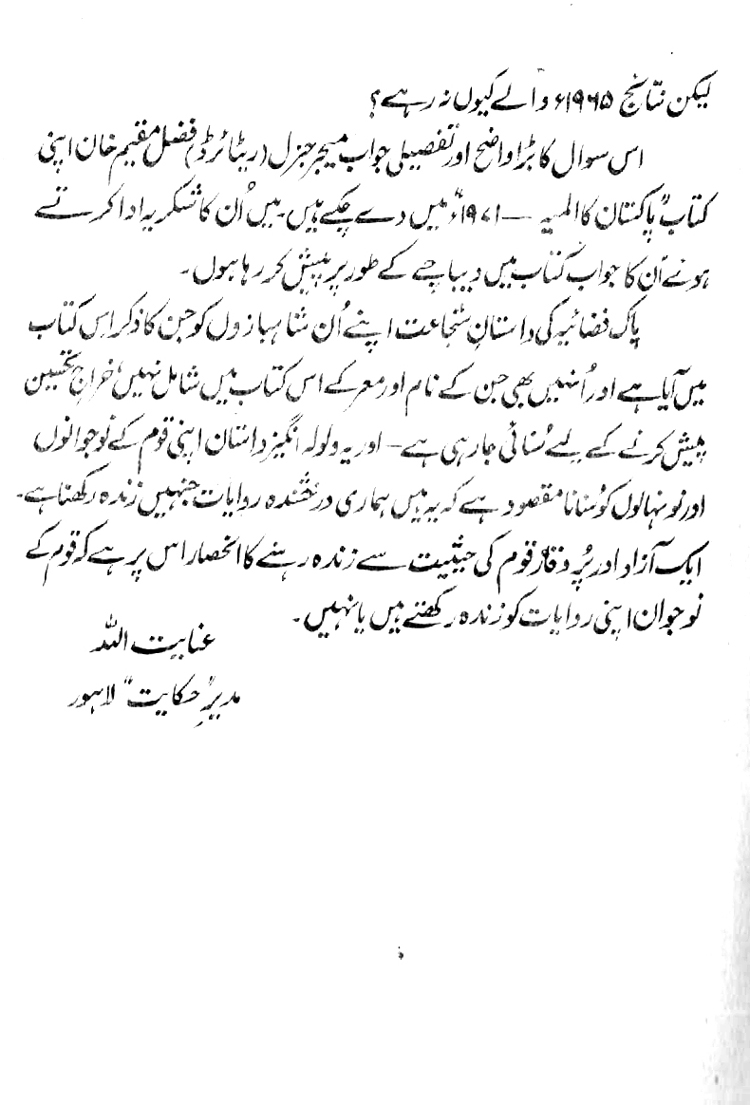 لیکن نتائج ۱۹۶۵ء والے کیوں نہ رہے؟
اس سوال کا بڑا واضح اور تفصیلی جواب میجر جنرل (ریٹائرڈ) فضل مقیم خان اپنی
کتاب "پاکستان کا المیہ — ۱۹۷۱ء" میں دے چکے ہیں۔ میں اُن کا شکریہ ادا کرتے
ہوئے اُن کا جواب کتاب میں دیباچے کے طور پر پیش کر رہا ہوں۔
پاک فضائیہ کی داستانِ شجاعت اپنے اُن شاہبازوں کو جن کا ذکر اس کتاب
میں آیا ہے اور اُنہیں بھی جن کے نام اور معرکے اس کتاب میں شامل نہیں، خراجِ تحسین
پیش کرنے کے لیے سُنائی جا رہی ہے – اور یہ ولولہ انگیز داستان اپنی قوم کے نوجوانوں
اور نونہالوں کو سُنانا مقصود ہے کہ یہ ہیں ہماری درخشندہ روایات جنہیں زندہ رکھنا ہے۔
ایک آزاد اور پُروقار قوم کی حیثیت سے زندہ رہنے کا انحصار اس پر ہے کہ قوم کے
نوجوان اپنی روایات کو زندہ رکھتے ہیں یا نہیں۔
عنایت اللہ
مدیرِ "حکایت" لاہور